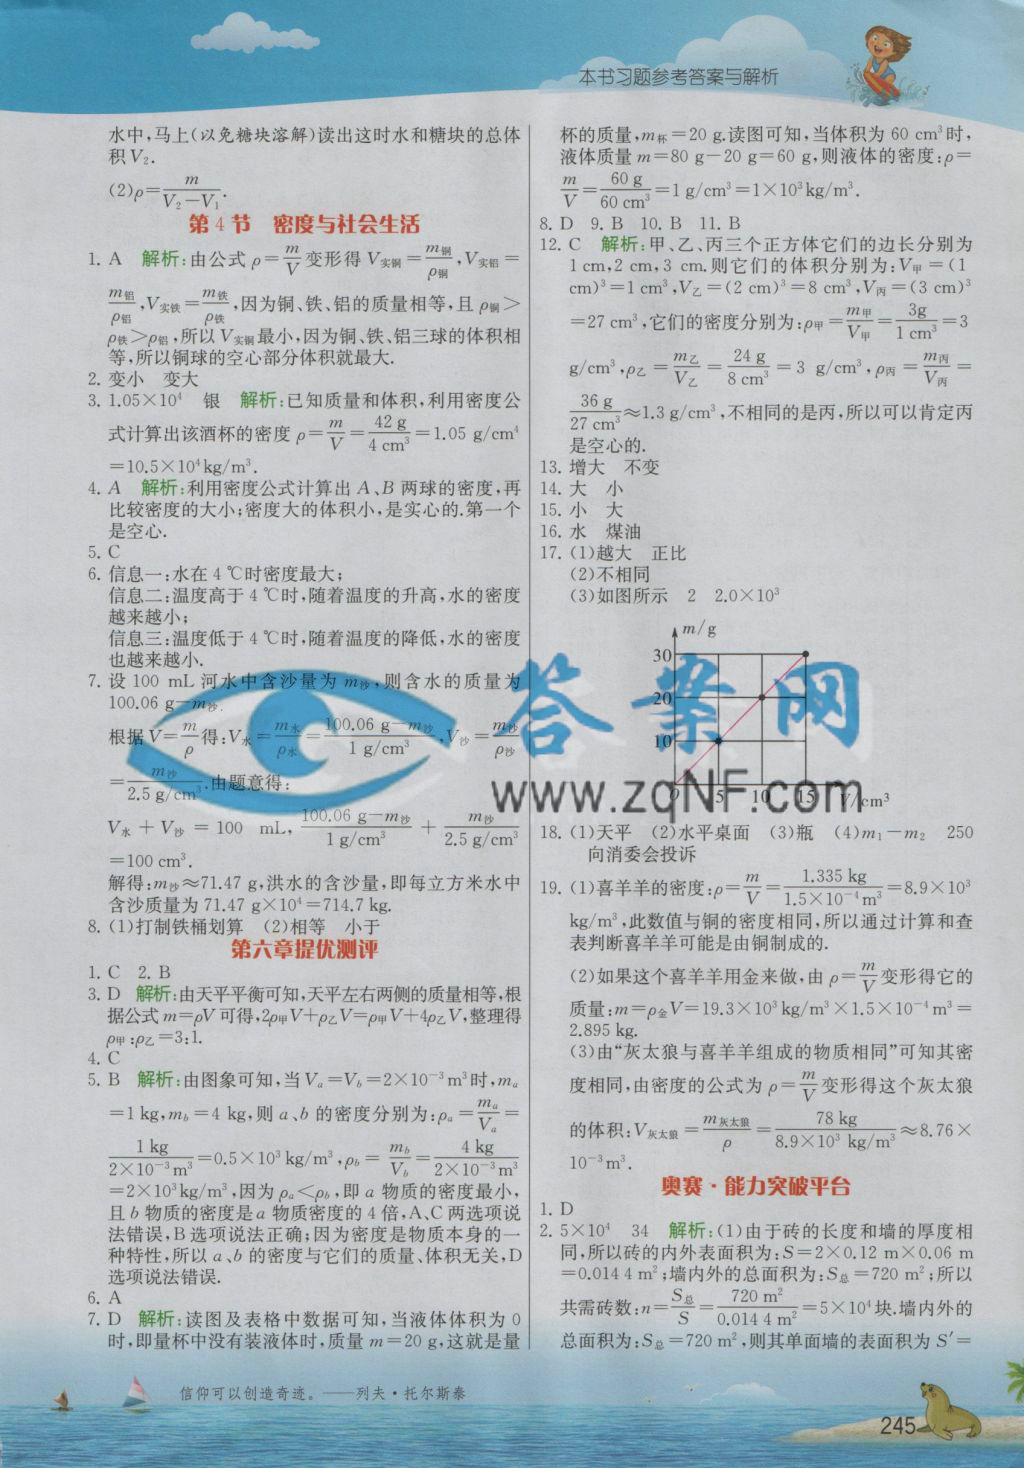 本书习题参考答案与解析
水中,马上(以免糖块溶解)读出这时水和糖块的总体
积V₂.
(2)ρ=m/(V₂−V₁).
第4节 密度与社会生活
1. A 解析:由公式 ρ=m/V 变形得 V实铜=m铜/ρ铜,V实铝=
m铝/ρ铝,V实铁=m铁/ρ铁,因为铜、铁、铝的质量相等,且 ρ铜>
ρ铁>ρ铝,所以V实铜最小,因为铜、铁、铝三球的体积相
等,所以铜球的空心部分体积就最大.
2. 变小 变大
3. 1.05×10⁴ 银 解析:已知质量和体积,利用密度公
式计算出该酒杯的密度 ρ=m/V=42 g/4 cm³=1.05 g/cm⁴
=10.5×10⁴kg/m³.
4. A 解析:利用密度公式计算出 A、B 两球的密度,再
比较密度的大小;密度大的体积小,是实心的.第一个
是空心.
5. C
6. 信息一:水在 4 ℃时密度最大;
信息二:温度高于 4 ℃时,随着温度的升高,水的密度
越来越小;
信息三:温度低于 4 ℃时,随着温度的降低,水的密度
也越来越小.
7. 设 100 mL 河水中含沙量为 m沙,则含水的质量为
100.06 g−m沙.
根据V=m/ρ得:V水=m水/ρ水=(100.06 g−m沙)/(1 g/cm³),V沙=m沙/ρ沙
=m沙/(2.5 g/cm³).由题意得:
V水+V沙=100 mL,(100.06 g−m沙)/(1 g/cm³)+m沙/(2.5 g/cm³)
=100 cm³.
解得:m沙≈71.47 g,洪水的含沙量,即每立方米水中
含沙质量为 71.47 g×10⁴=714.7 kg.
8. (1)打制铁桶划算 (2)相等 小于
第六章提优测评
1. C 2. B
3. D 解析:由天平平衡可知,天平左右两侧的质量相等,根
据公式 m=ρV 可得,2ρ甲V+ρ乙V=ρ甲V+4ρ乙V,整理得
ρ甲:ρ乙=3:1.
4. C
5. B 解析:由图象可知,当Va=Vb=2×10⁻³m³时,ma
=1 kg,mb=4 kg,则 a、b 的密度分别为:ρa=ma/Va=
1 kg/(2×10⁻³m³)=0.5×10³kg/m³,ρb=mb/Vb=4 kg/(2×10⁻³m³)
=2×10³kg/m³,因为 ρa<ρb,即 a 物质的密度最小,
且 b 物质的密度是 a 物质密度的 4 倍,A、C 两选项说
法错误,B 选项说法正确;因为密度是物质本身的一
种特性,所以 a、b 的密度与它们的质量、体积无关,D
选项说法错误.
6. A
7. D 解析:读图及表格中数据可知,当液体体积为 0
时,即量杯中没有装液体时,质量 m=20 g,这就是量
杯的质量,m杯=20 g.读图可知,当体积为 60 cm³时,
液体质量 m=80 g−20 g=60 g,则液体的密度:ρ=
m/V=60 g/60 cm³=1 g/cm³=1×10³kg/m³.
8. D 9. B 10. B 11. B
12. C 解析:甲、乙、丙三个正方体它们的边长分别为
1 cm,2 cm,3 cm.则它们的体积分别为:V甲=(1
cm)³=1 cm³,V乙=(2 cm)³=8 cm³,V丙=(3 cm)³
=27 cm³,它们的密度分别为:ρ甲=m甲/V甲=3g/1 cm³=3
g/cm³,ρ乙=m乙/V乙=24 g/8 cm³=3 g/cm³,ρ丙=m丙/V丙=
36 g/27 cm³≈1.3 g/cm³,不相同的是丙,所以可以肯定丙
是空心的.
13. 增大 不变
14. 大 小
15. 小 大
16. 水 煤油
17. (1)越大 正比
(2)不相同
(3)如图所示 2 2.0×10³
m/g
30
20
10
0 5 10 15 V/cm³
答案网
www.zqNF.com
18. (1)天平 (2)水平桌面 (3)瓶 (4)m₁−m₂ 250
向消委会投诉
19. (1)喜羊羊的密度:ρ=m/V=1.335 kg/(1.5×10⁻⁴m³)=8.9×10³
kg/m³,此数值与铜的密度相同,所以通过计算和查
表判断喜羊羊可能是由铜制成的.
(2)如果这个喜羊羊用金来做,由 ρ=m/V变形得它的
质量:m=ρ金V=19.3×10³kg/m³×1.5×10⁻⁴m³=
2.895 kg.
(3)由“灰太狼与喜羊羊组成的物质相同”可知其密
度相同,由密度的公式为 ρ=m/V变形得这个灰太狼
的体积:V灰太狼=m灰太狼/ρ=78 kg/(8.9×10³ kg/m³)≈8.76×
10⁻³m³.
奥赛·能力突破平台
1. D
2. 5×10⁴ 34 解析:(1)由于砖的长度和墙的厚度相
同,所以砖的内外表面积为:S=2×0.12 m×0.06 m
=0.014 4 m²;墙内外的总面积为:S总=720 m²;所以
共需砖数:n=S总/S=720 m²/0.014 4 m²=5×10⁴块.墙内外的
总面积为:S总=720 m²,则其单面墙的表面积为 S′=
信仰可以创造奇迹。——列夫·托尔斯泰
245